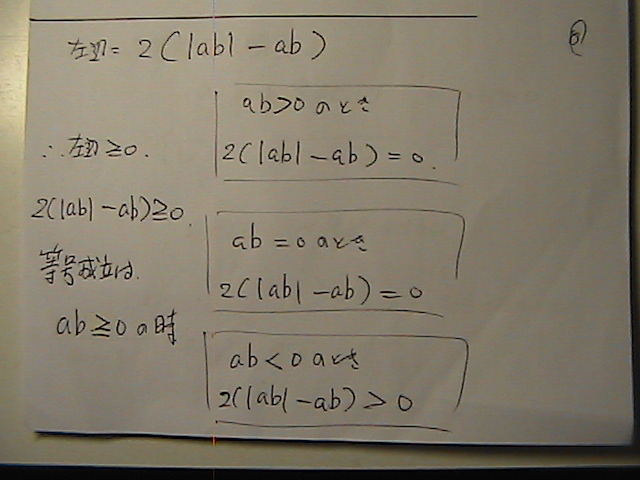 左辺 = 2(|ab| - ab)
ab>0 のとき
2(|ab| - ab) = 0.
∴ 左辺 ≧0.
2(|ab| - ab)≧0.
等号成立は
ab≧0 の時
ab = 0 のとき
2(|ab| - ab) = 0
ab < 0 のとき
2(|ab| - ab) > 0